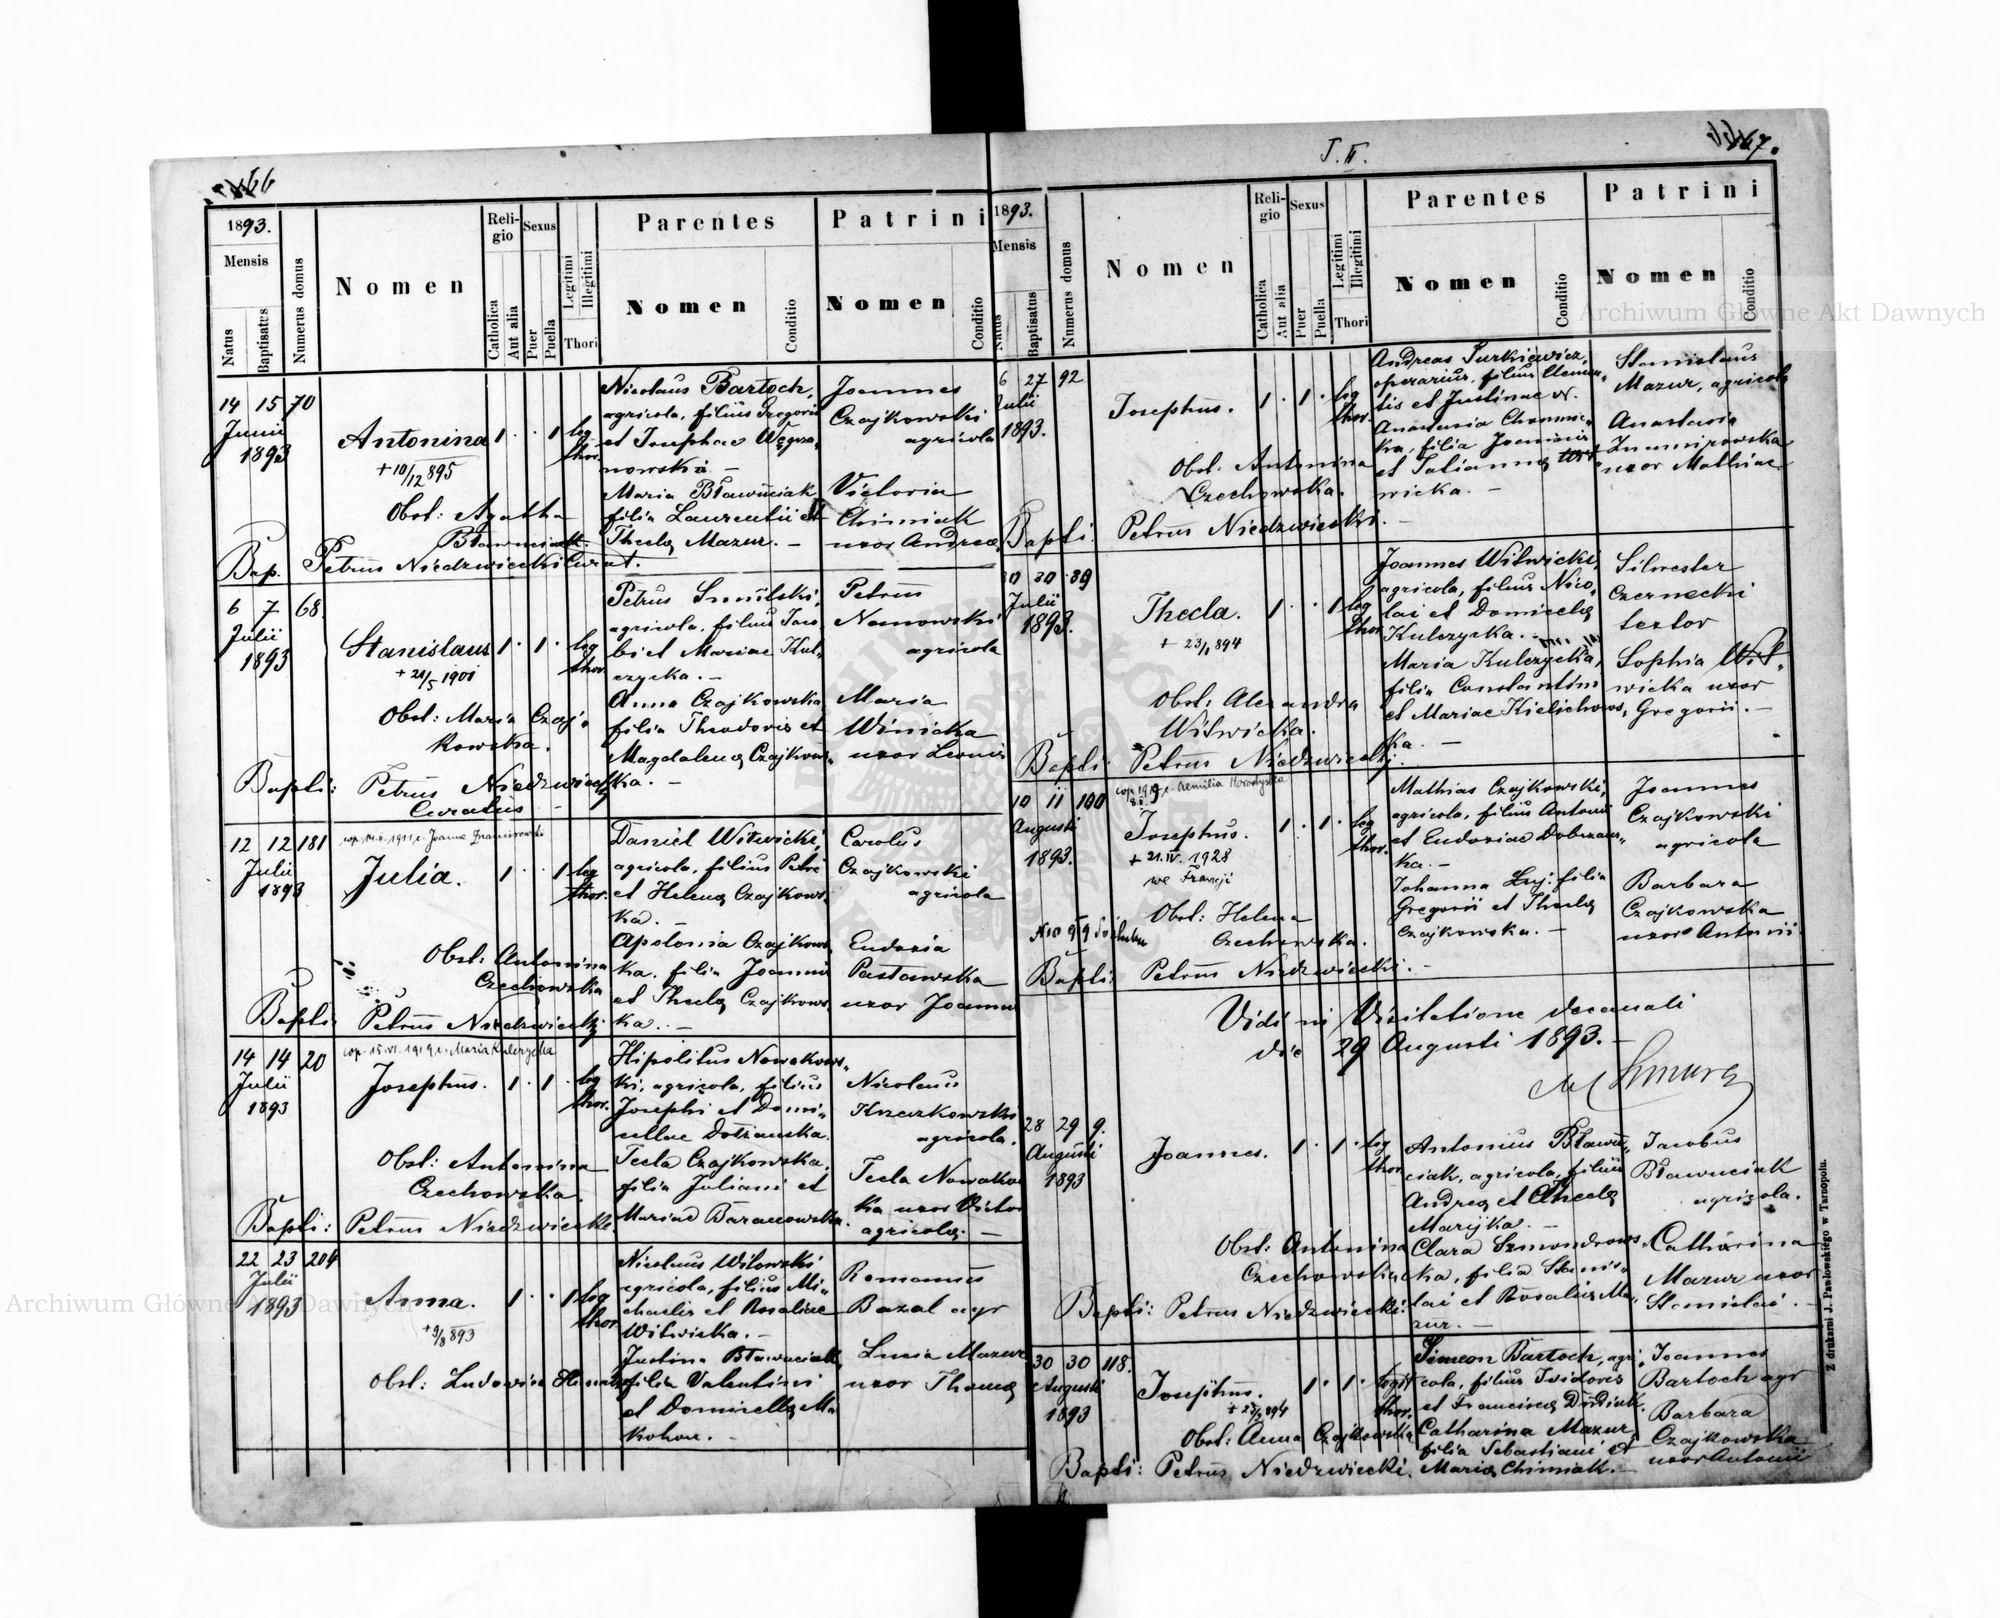 66
1893.
Mensis
Natus
Baptisatus
Numerus domus
Nomen
Religio
Catholica
Aut alia
Sexus
Puer
Puella
Legitimi
Illegitimi
Thori
Parentes
Nomen
Conditio
Patrini
Nomen
Conditio
14 15 70
Junii
1893
Antonina 1 · · 1 leg
thor.
+ 10/12 895
Obst: Agatha
Bławuciak.
Nicolaus Bartoch,
agricola, filius Gregorii
et Josephae Węgrza-
nowska. —
Maria Bławuciak
filia Laurentii et
Thecla Mazur. —
Joannes
Czajkowski
agricola
Victoria
Chimiak
uxor Andreae
Bap. Petrus Niedzwiecki Curat.
6 7 68.
Julii
1893
Stanislaus 1 · 1 · leg
thor.
+ 1901
Obst: Maria Czaj-
kowska.
Petrus
agricola, filius Jaco-
bi et Mariae Kul-
czycka. —
Anna Czajkowska
filia Theodoris et
Magdalena Czajkows-
ka. —
Petrus
agricola
Maria
Winicka
uxor Leonis
Bapti: Petrus Niedzwiecki
Curatus —
12 12 181
Julii
1893
Julia. 1 · · 1 leg
thor.
Obst: Antonina
Czechowska
Daniel Witwicki,
agricola, filius Petri
et Helena Czajkows-
ka. —
Apolonia Czajkows-
ka. filia Joannis
et Thecla Czajkows-
ka. —
Carolus
Czajkowski
agricola
Eudoxia
Pastawska
uxor Joannis
Bapti: Petrus Niedzwiecki
14 14 20
Julii
1893
cop. 15.VI. 1919 c. Maria Kulczycka
Josephus. 1 · 1 · leg
thor.
Obst: Antonina
Czechowska.
Hipolitus Nowakows-
ki, agricola, filius
Josephi et Domi-
cellae
Tecla Czajkowska,
filia Juliani et
Mariae Baranowska.
Nicolaus
Kraszkowski
agricola.
Tecla Nowakow
ka uxor Victor
agricola. —
Bapti: Petrus Niedzwiecki
22 23 204
Julii
1893
Anna. 1 · · 1 leg
thor
+ 9/8 893
Obst: Ludovica
Nicolaus Witowski
agricola, filius Mi-
chaelis et Rosaliae
Witwicka. —
Justina Bławuciak,
filia Valentini
et Domicella Ma
kohon. —
Romanus
Bazal agr
Lucia Mazur
uxor Thoma
T. II.
67.
1893.
Mensis
Natus
Baptisatus
Numerus domus
Nomen
Religio
Catholica
Aut alia
Sexus
Puer
Puella
Legitimi
Illegitimi
Thori
Parentes
Nomen
Conditio
Patrini
Nomen
Conditio
6 27 92
Julii
1893.
Josephus. 1 · 1 · leg
thor.
Obst: Antonina
Czechowska.
Andreas Turkiewicz,
operarius, filius Clemen-
tis et Justinae N.
Anastasia
filia Joannis
et Tatianna
wicka. —
Stanislaus
Mazur, agricola
Anastasia
uxor Mathiae
Bapti: Petrus Niedzwiecki. —
30 30 89
Julii
1893.
Thecla. 1 · · 1 leg
thor
+ 23/1 894
Obst: Alexandra
Witwicka.
Joannes Witwicki,
agricola, filius Nico-
lai et Domicella
Kulczycka. —
Maria Kulczycka,
filia Constantini
et Mariae Kielichows-
ka. —
Silvester
Czernecki
textor
Sophia Wit-
wicka uxor
Gregorii. —
Bapti: Petrus Niedzwiecki.
10 11 100
Augusti
1893.
cop 1919 c. Aemilia Horodyska
Josephus. 1 · 1 · leg
thor.
+ 21.IV. 1928
we Francji
Obst: Helena
Czechowska.
Mathias Czajkowski,
agricola, filius Antonii
et Eudoxiae Dobrzans-
ka. —
Johanna Łuj: filia
Gregorii et Thecla
Czajkowska. —
Joannes
Czajkowski
agricola
Barbara
Czajkowska
uxor Antonii.
Bapti: Petrus Niedzwiecki. —
Vidi in Visitatione decanali
die 29 Augusti 1893. —
28 29 9.
Augusti
1893
Joannes. 1 · 1 · leg
thor
Obst: Antonina
Czechowska
Antonius Bławu-
ciak, agricola, filius
Andrea et Thecla
Maryjka. —
Clara Szmondrows
ka, filia Stanis-
lai et Rosalia Ma-
zur. —
Jacobus
Bławuciak
agricola.
Catharina
Mazur uxor
Stanislai. —
Bapti: Petrus Niedzwiecki.
30 30 118.
Augusti
1893
Josephus. 1 · 1 · legit
thor.
Obst: Anna Czajkowska
Simeon Bartoch, agri-
cola, filius Isidoris
et Francisca Dudiak.
Catharina Mazur,
filia Sebastiani et
Maria Chimiak. —
Joannes
Bartoch agr
Barbara
Czajkowska
uxor Antonii
Bapti: Petrus Niedzwiecki.
Z drukarni J. Pawłowskiego w Tarnopolu.
Archiwum Główne Akt Dawnych
Archiwum Główne Akt Dawnych